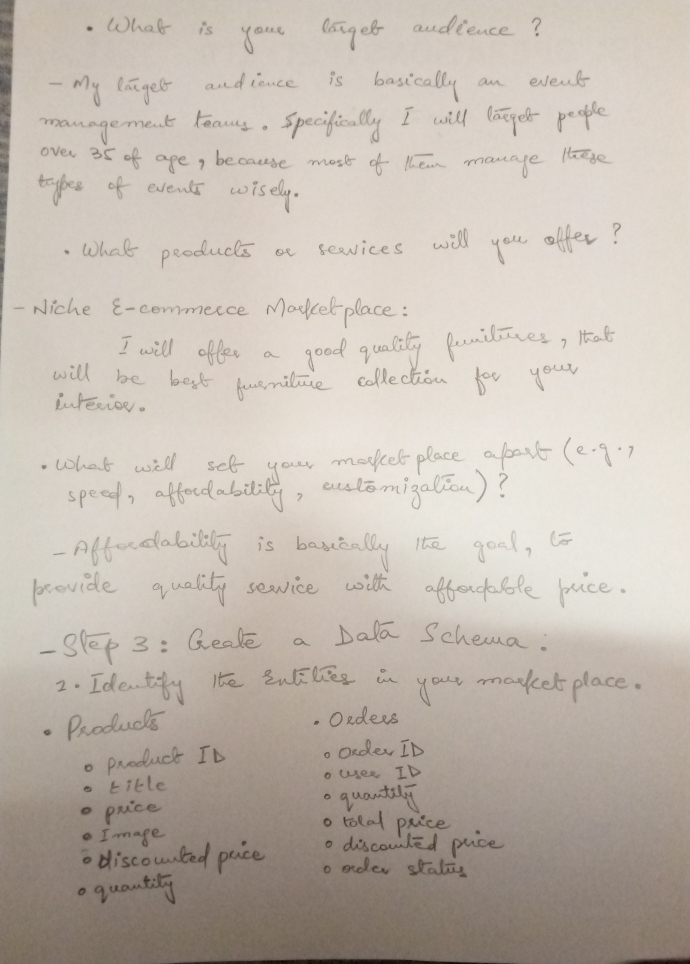 • What is your target audience ?
- My target audience is basically an event
management teams. Specifically I will target people
over 35 of age, because most of them manage these
types of events wisely.
• What products or services will you offer ?
- Niche E-commerce Marketplace:
I will offer a good quality funitures, that
will be best furniture collection for your
interior.
• What will set your marketplace apart (e.g.,
speed, affordability, customization) ?
- Affordability is basically the goal, to
provide quality service with affordable price.
- Step 3: Create a Data Schema:
2. Identify the Entities in your marketplace.
• Products
◦ product ID
◦ title
◦ price
◦ Image
◦ discounted price
◦ quantity
• Orders
◦ Order ID
◦ user ID
◦ quantity
◦ total price
◦ discounted price
◦ order status